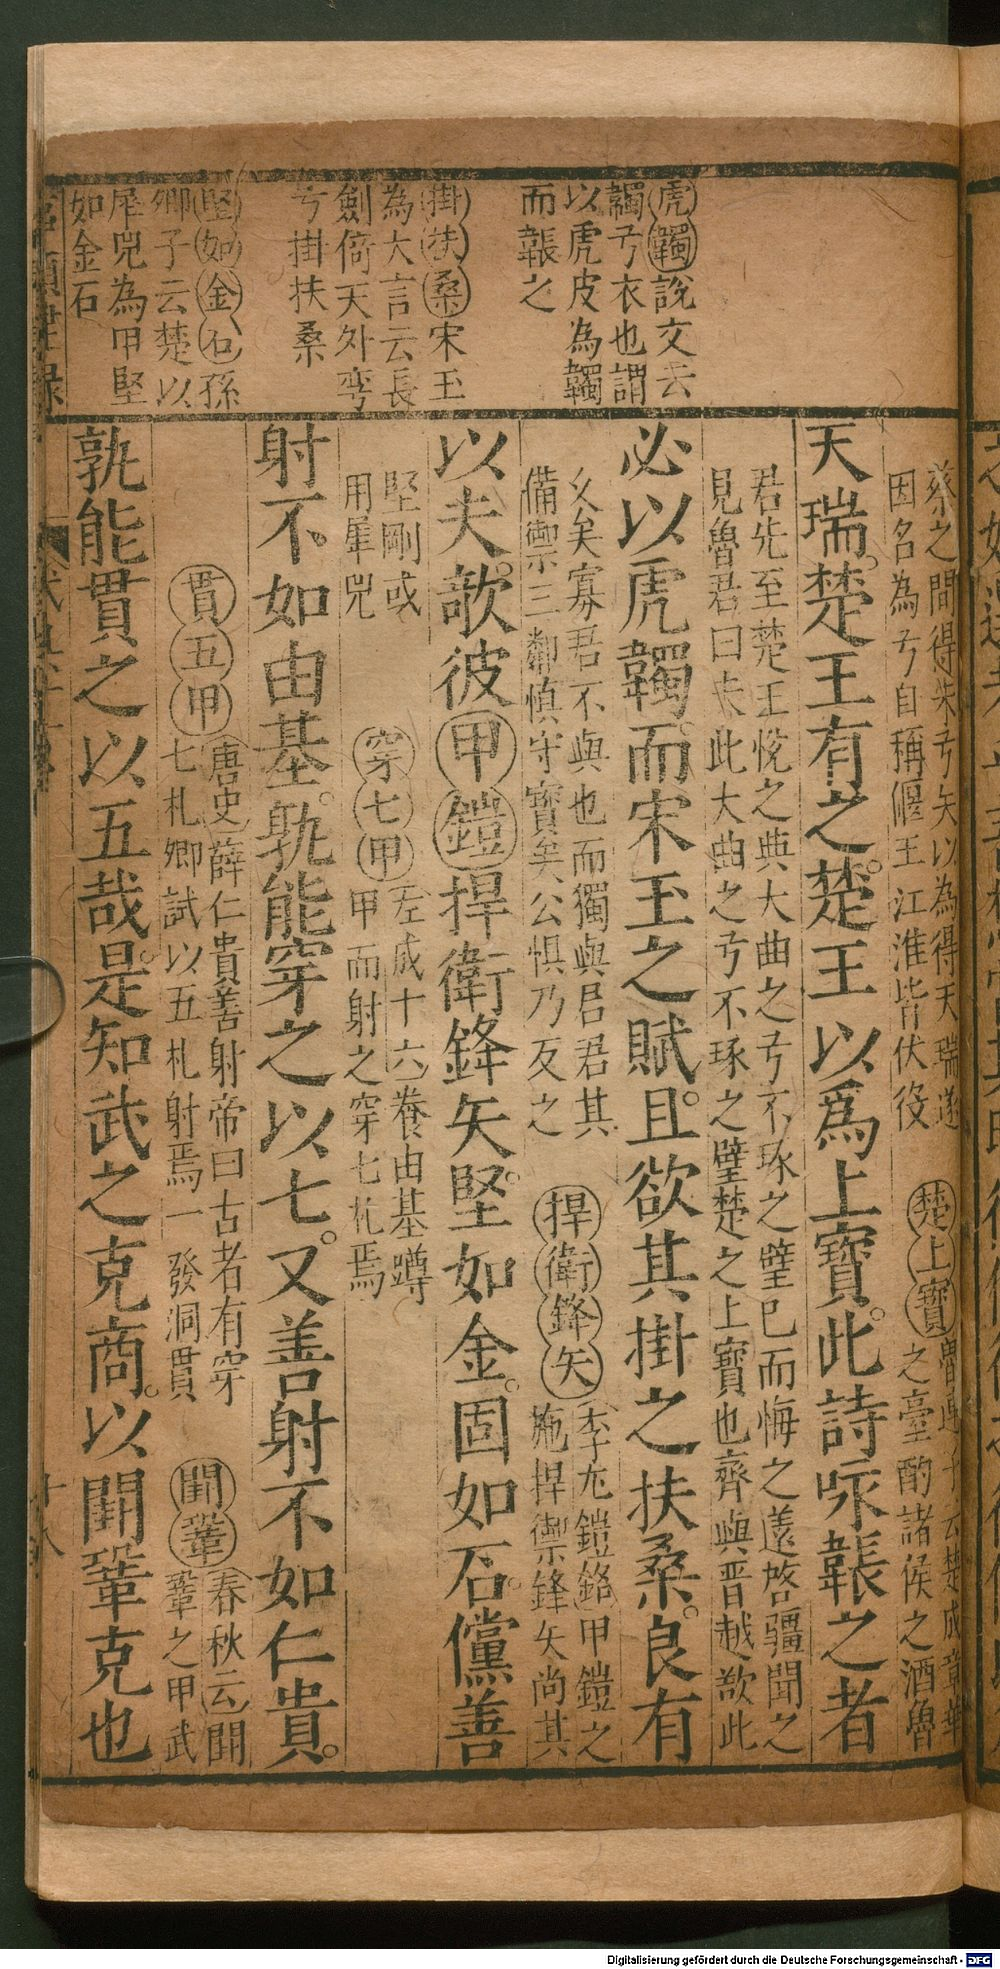 虎韣說文云
韣弓衣也謂
以虎皮為韣
而韔之
掛扶桑宋玉
為大言云長
劍倚天外弯
弓掛扶桑
堅如金石孫
卿子云楚以
犀兕為甲堅
如金石
蔡之間得朱弓矢以為得天瑞遂
因名為弓自稱偃王江淮皆伏役
楚上寶
云楚成章華
之臺酌諸侯之酒魯
天瑞。楚王有之。楚王以爲上寶。此詩咏韔之者
君先至楚王悅之與大曲之弓不琢之璧已而悔之薳啓疆聞之
見魯君曰此大曲之弓不琢之璧楚之上寶也齊與晋越欲此
必以虎韣。而宋玉之賦。且欲其掛之扶桑。良有
久矣寡君不與也而獨與君君其
備禦三鄰慎守寶矣公惧乃反之
捍衛鋒矢
李尤鎧銘甲鎧之
施捍禦鋒矢尚其
以夫。歌彼甲鎧捍衛鋒矢。堅如金。固如石。儻善
堅剛或
用犀兕
穿七甲
左成十六養由基蹲
甲而射之穿七札焉
射不如由基。孰能穿之以七。又善射不如仁貴。
貫五甲
唐史薛仁貴善射帝曰古者有穿
七札卿試以五札射焉一發洞貫
閈鞏
春秋云閈
鞏之甲武
孰能貫之以五哉。是知武之克商。以閈鞏克也
十八
Digitalisierung gefördert durch die Deutsche Forschungsgemeinschaft - DFG